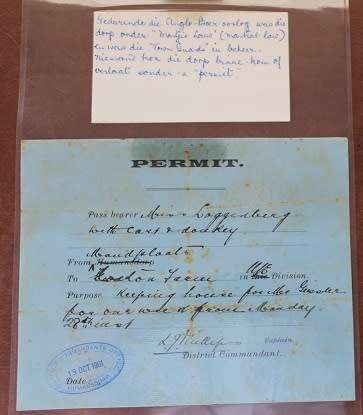 Gedurende die Anglo-Boer oorlog was die
dorp onder "Martjie Louw" (martial law)
en was die "Town Guards" in beheer.
Niemand kon die dorp binne kom of
verlaat sonder 'n "permit"
PERMIT.
Pass bearer Miss Loggenberg
with cart & donkey
Mandplaats
From Humansdorp
To Farm in Division.
Purpose Keeping house for Mr
for one week from Monday
28th inst
Captain
District Commandant.
COMMANDANTS OFFICE
19 OCT 1901
HUMANSDORP
Date